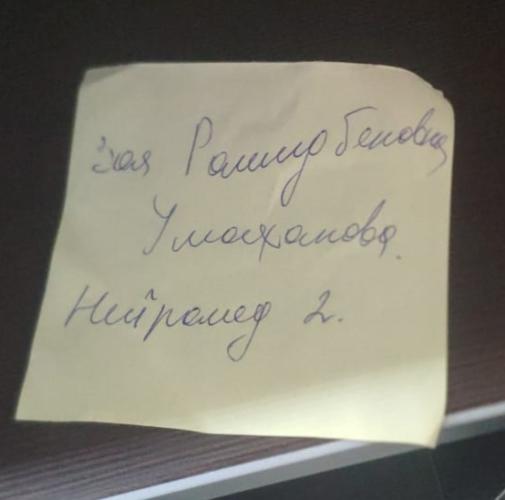 Зоя Рашидбековна
Умаханова.
Нейромед 2.